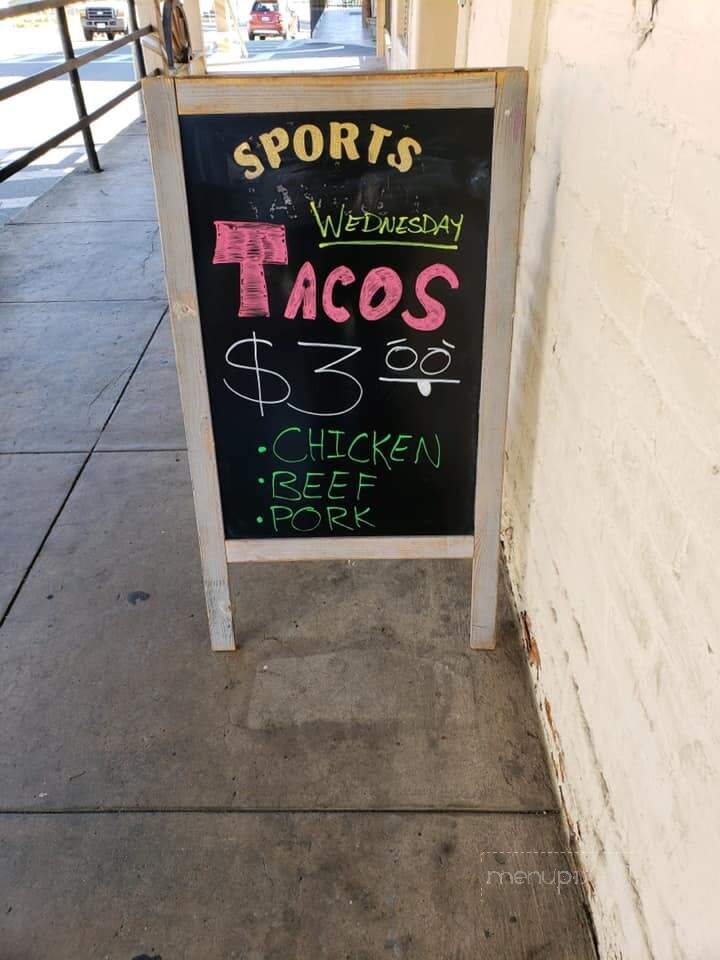 SPORTS
WEDNESDAY
TACOS
$3 00
• CHICKEN
• BEEF
• PORK